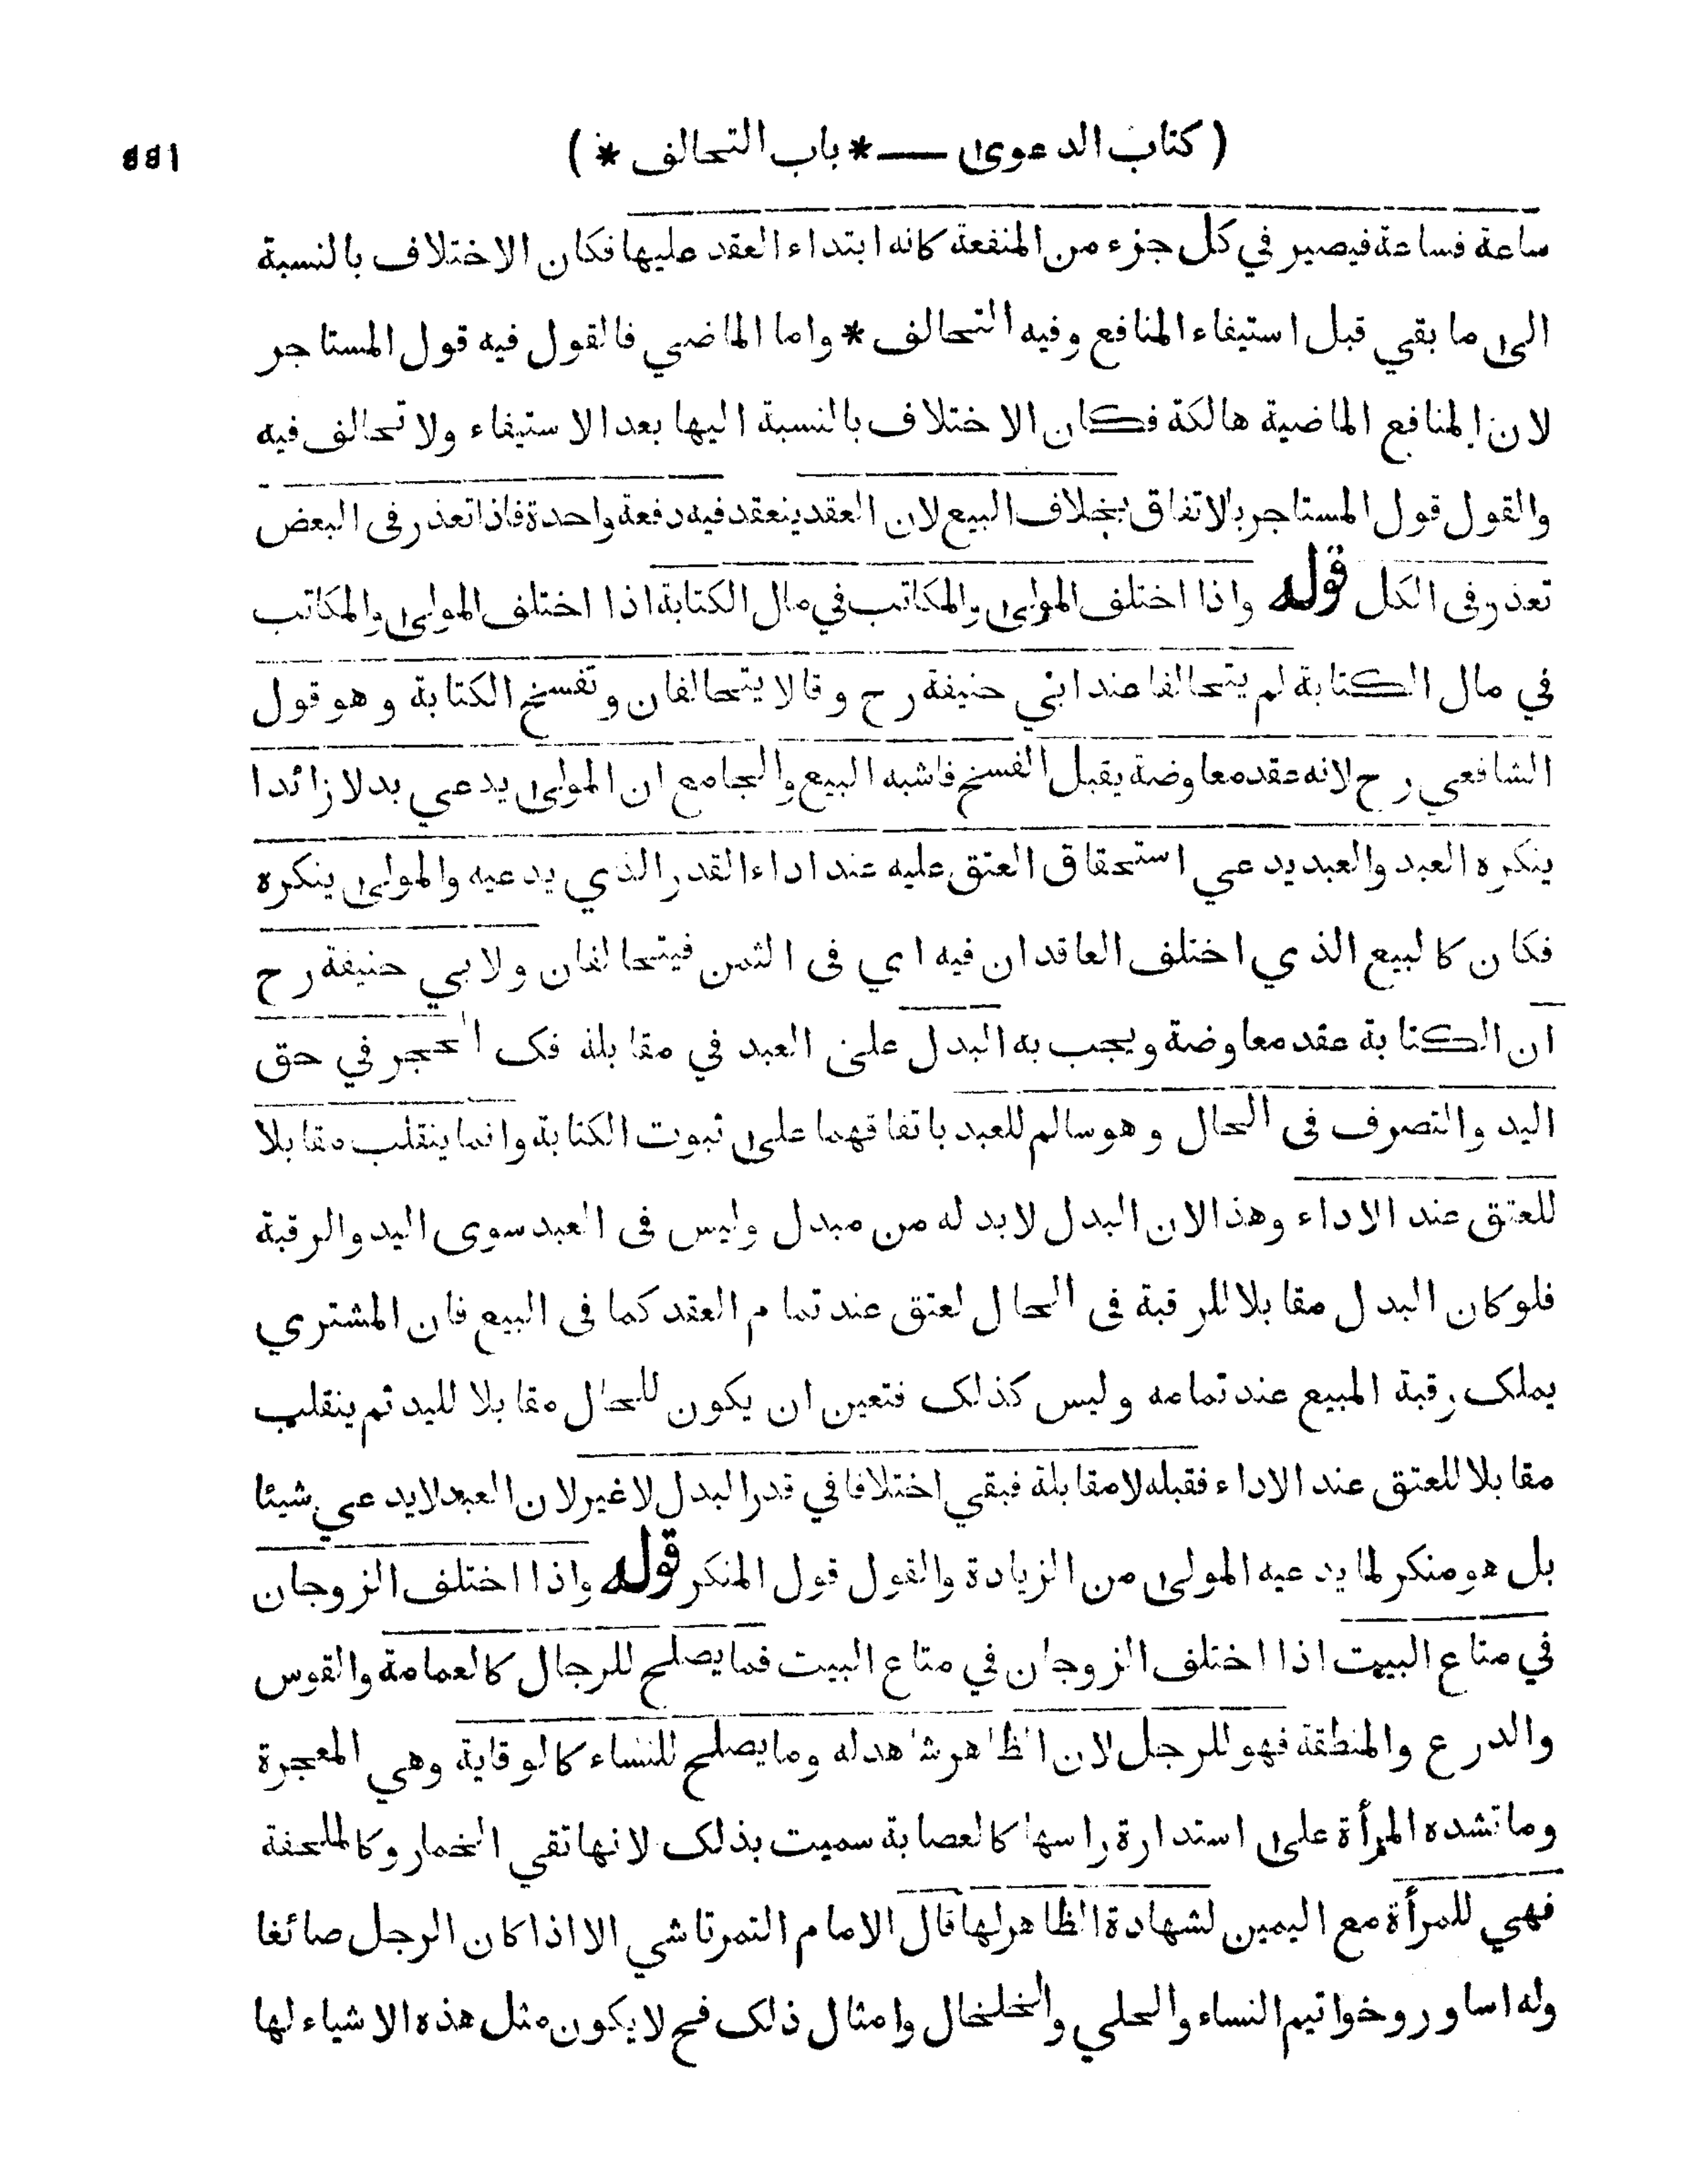 ( كتاب الدعوى — * باب التحالف * )
ساعة فساعة فيصير في كل جزء من المنفعة كانه ابتداء العقد عليها فكان الاختلاف بالنسبة
الى ما بقي قبل استيفاء المنافع وفيه التحالف * واما الماضي فالقول فيه قول المستاجر
لان المنافع الماضية هالكة فكان الاختلاف بالنسبة اليها بعد الاستيفاء ولا تحالف فيه
والقول قول المستاجر بالاتفاق بخلاف البيع لان العقد ينعقد فيه دفعة واحدة فاذا تعذر في البعض
تعذر في الكل قوله واذا اختلف المولى والمكاتب في مال الكتابة اذا اختلف المولى والمكاتب
في مال الكتابة لم يتحالفا عند ابي حنيفة رح وقالا يتحالفان وتفسخ الكتابة وهو قول
الشافعي رح لانه عقد معاوضة يقبل الفسخ فاشبه البيع والجامع ان المولى يدعي بدلا زائدا
ينكره العبد والعبد يدعي استحقاق العتق عليه عند اداء القدر الذي يدعيه والمولى ينكره
فكان كالبيع الذي اختلف العاقدان فيه اي في الثمن فيتحالفان ولابي حنيفة رح
ان الكتابة عقد معاوضة ويجب به البدل على العبد في مقابلة فك الحجر في حق
اليد والتصرف في الحال وهو سالم للعبد باتفاقهما على ثبوت الكتابة وانما ينقلب مقابلا
للعتق عند الاداء وهذا لان البدل لا بد له من مبدل وليس في العبد سوى اليد والرقبة
فلو كان البدل مقابلا للرقبة في الحال لعتق عند تمام العقد كما في البيع فان المشتري
يملك رقبة المبيع عند تمامه وليس كذلك فتعين ان يكون للحال مقابلا لليد ثم ينقلب
مقابلا للعتق عند الاداء فقبله لا مقابلة فبقي اختلافا في قدر البدل لا غير لان العبد لا يدعي شيئا
بل هو منكر لما يدعيه المولى من الزيادة والقول قول المنكر قوله واذا اختلف الزوجان
في متاع البيت اذا اختلف الزوجان في متاع البيت فما يصلح للرجال كالعمامة والقوس
والدرع والمنطقة فهو للرجل لان الظاهر شاهد له وما يصلح للنساء كالوقاية وهي المعجرة
وما تشده المرأة على استدارة راسها كالعصابة سميت بذلك لانها تقي الخمار وكالملحفة
فهي للمرأة مع اليمين لشهادة الظاهر لها قال الامام التمرتاشي الا اذا كان الرجل صائغا
وله اساور وخواتيم النساء والحلي والخلخال وامثال ذلك فح لا يكون مثل هذه الاشياء لها